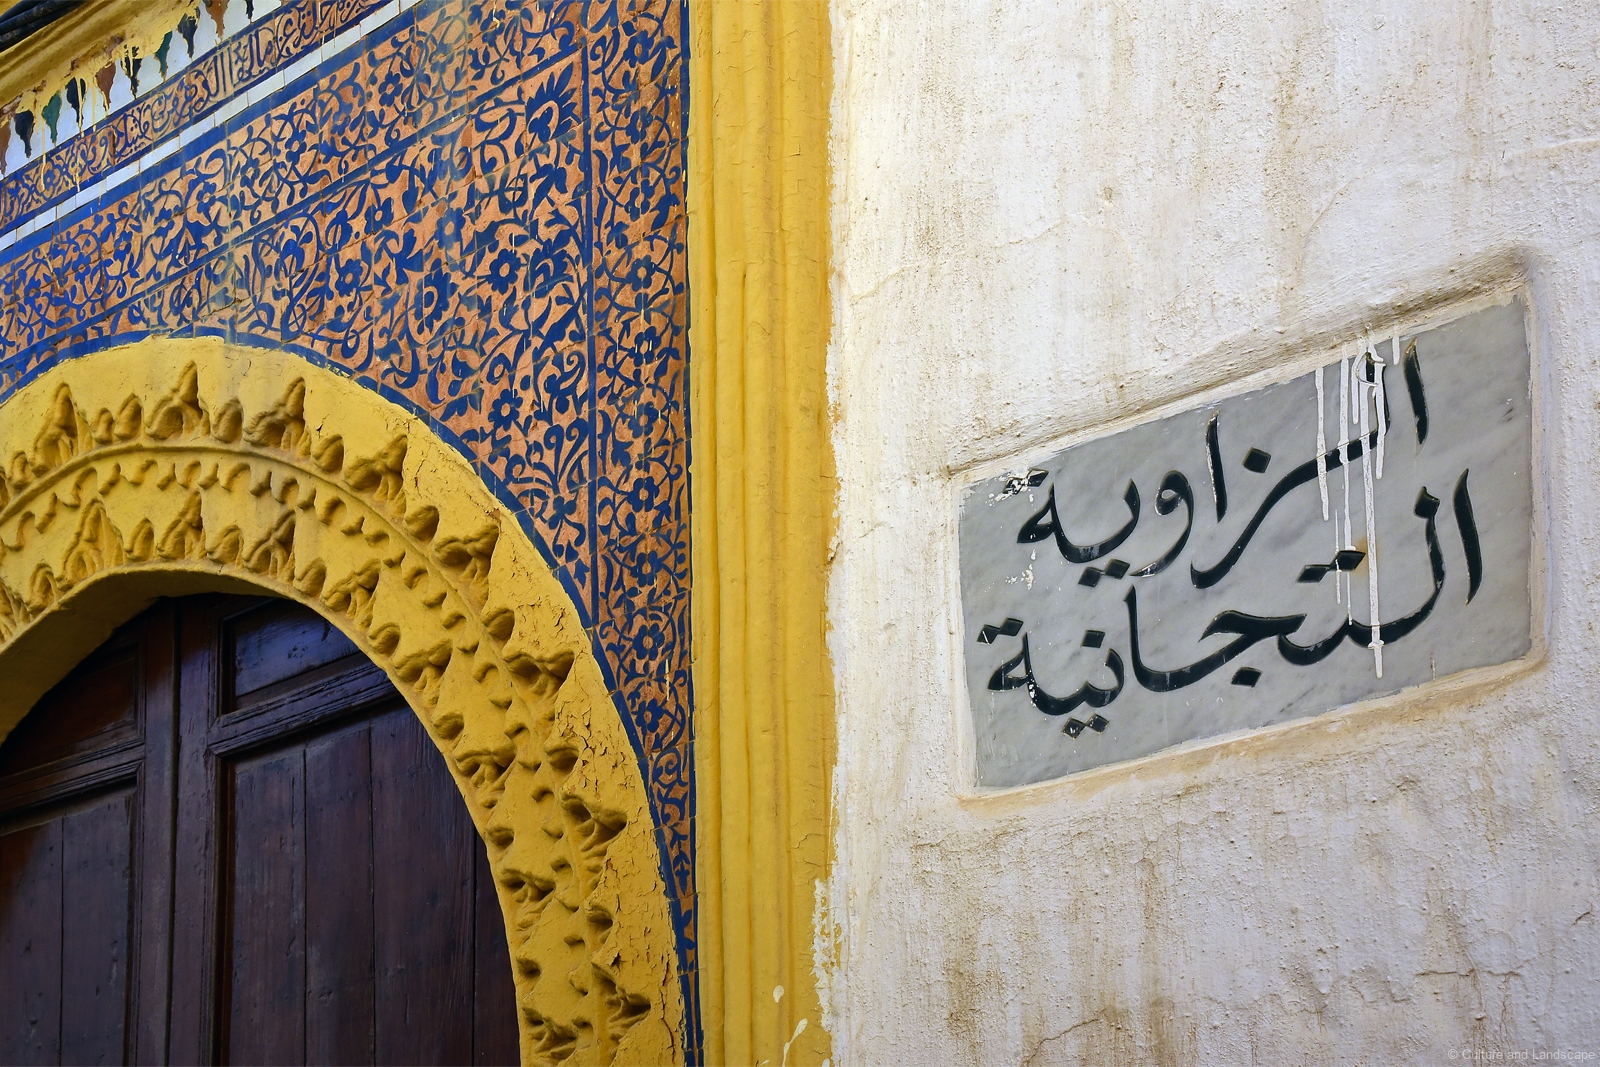 الزاوية
التجانية
© Culture and Landscape